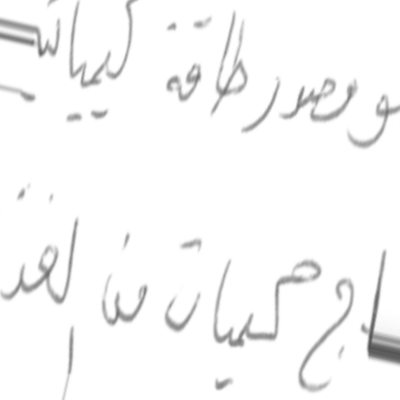 و مصدر طاقة كميات
ج كميات من الغذ